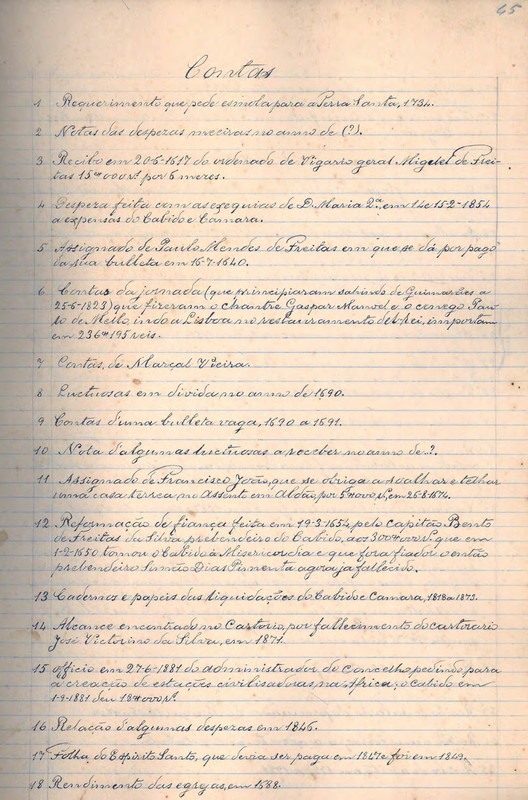 65
Contas
1 Requerimento que pede esmola para a Terra Santa, 1734.
2 Notas das despezas meeiras no anno de (?).
3 Recibo em 20-6-1617 do ordenado de Vigario geral Miguel de Frei-
tas 15$000 rs. por 6 meses.
4 Despeza feita com as exequias de D. Maria 2ª, em 14 e 15-2-1854
a expensas do Cabido e Camara.
5 Assignado de Paulo Mendes de Freitas em que se dá por pago
da sua bulleta em 16-7-1640.
6 Contas da jornada (que principiaram sahindo de Guimarães a
25-6-1823) que fizeram o chantre Gaspar Manoel e o conego Pau-
lo de Mello, indo a Lisboa no restauramento del-rei, importam
em 236$195 reis.
7 Contas, de Marçal Vieira.
8 Luctuosas em divida no anno de 1690.
9 Contas d'uma bulleta vaga, 1690 a 1691.
10 Nota d'algumas luctuosas a receber no anno de..?.
11 Assignado de Francisco João, que se obriga a soalhar e telhar
uma casa terrea no Assento em Aldão, por em 26-8-1674.
12 Reformação de fiança feita em 19-3-1654, pelo capitão Bento
de Freitas da Silva prebendeiro do Cabido, aos 300$000 rs. que em
1-2-1650 tomou o Cabido à Misericordia e que fora fiador o então
prebendeiro Simão Dias Pimenta agora já fallecido.
13 Cadernos e papeis das liquidações do Cabido e Camara, 1818 a 1872.
14 Alcance encontrado no Cartorio, por fallecimento do cartorario
José Victorino da Silva, em 1871.
15 Officio em 27-6-1881 do administrador do Concelho pedindo para
a creação de estações civilisadoras, na Africa; o Cabido em
1-9-1881 deu 18$000 rs.
16 Relação d'algumas despezas em 1846.
17 Folha do Espirito Santo, que devia ser paga em 1847 e foi em 1849.
18 Rendimento das egrejas, em 1688.